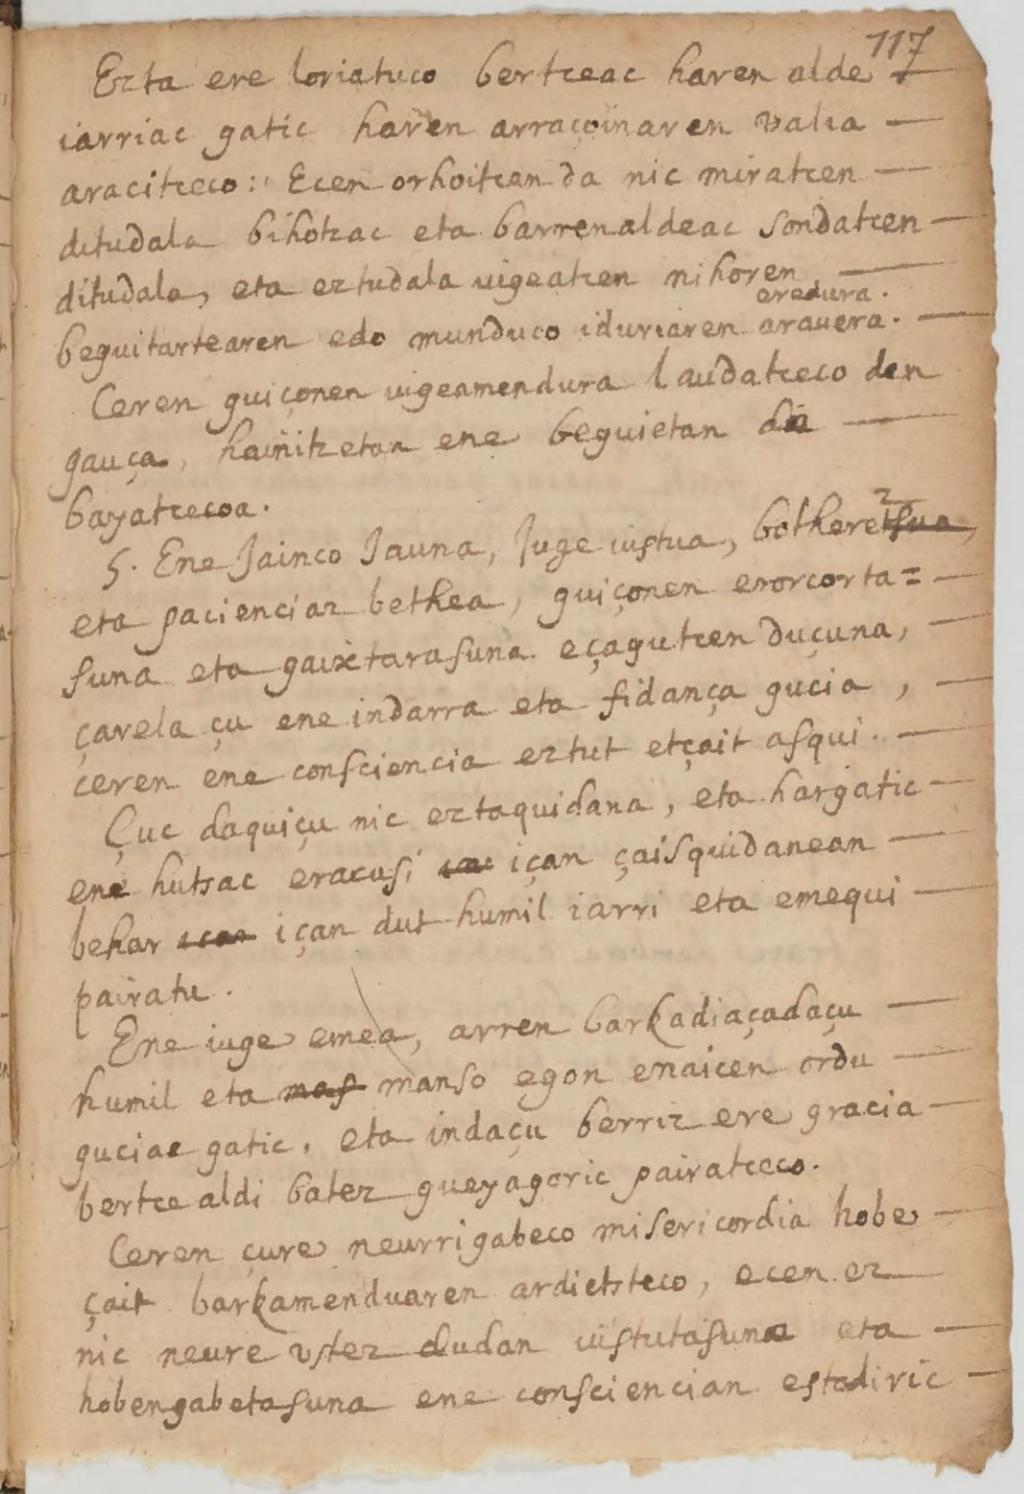 117
Ezta ere loriatuco bertceac haren alde
iarriac gatic haren arraçoinaren valia —
araciteco: Ecen orhoitcan da nic miratcen —
ditudala bihotzac eta barrenaldeac sondatcen —
ditudala, eta eztudala uigeatcen nihoren —
eredura.
beguitartearen edo munduco iduriaren arauera. —
Ceren guiçonen uigeamendura laudatceco den
gauça, hainitzetan ene beguietan da —
bayatcecoa.
5. Ene Jainco Jauna, Juge iustua, botheretsua,
eta pacienciaz bethea, guiçonen erorcorta= —
suna eta gaixtarasuna eçagutcen duçuna, —
çarela çu ene indarra eta fidança gucia, —
ceren ene consciencia eztut etçait asqui. —
Çuc daquiçu nic eztaquidana, eta hargatic —
ene hutsac eracusi içan çaisquidanean —
behar içan dut humil iarri eta emequi —
pairatu.
Ene iuge emea, arren barkadiaçadaçu —
humil eta mas manso egon enaicen ordu —
guciac gatic, eta indaçu berriz ere gracia —
bertce aldi batez gueyagoric pairatceco.
Ceren çure neurrigabeco misericordia hobe —
çait barkamenduaren ardietsteco, ecen ez
nic neure ustez dudan iustutasuna eta —
hobengabetasuna ene consciencian estadiric —